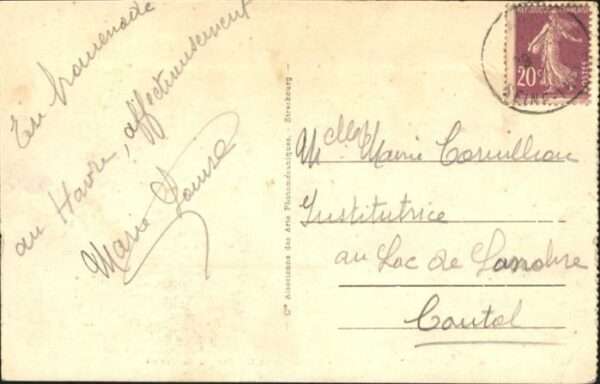 En promenade
au Havre, affectueusement
Marie Louise
Cie Alsacienne des Arts Photomécaniques, Strasbourg
20c
POSTES
SEINE
Melle Marie
Institutrice
au Lac de Lanobre
Cantal